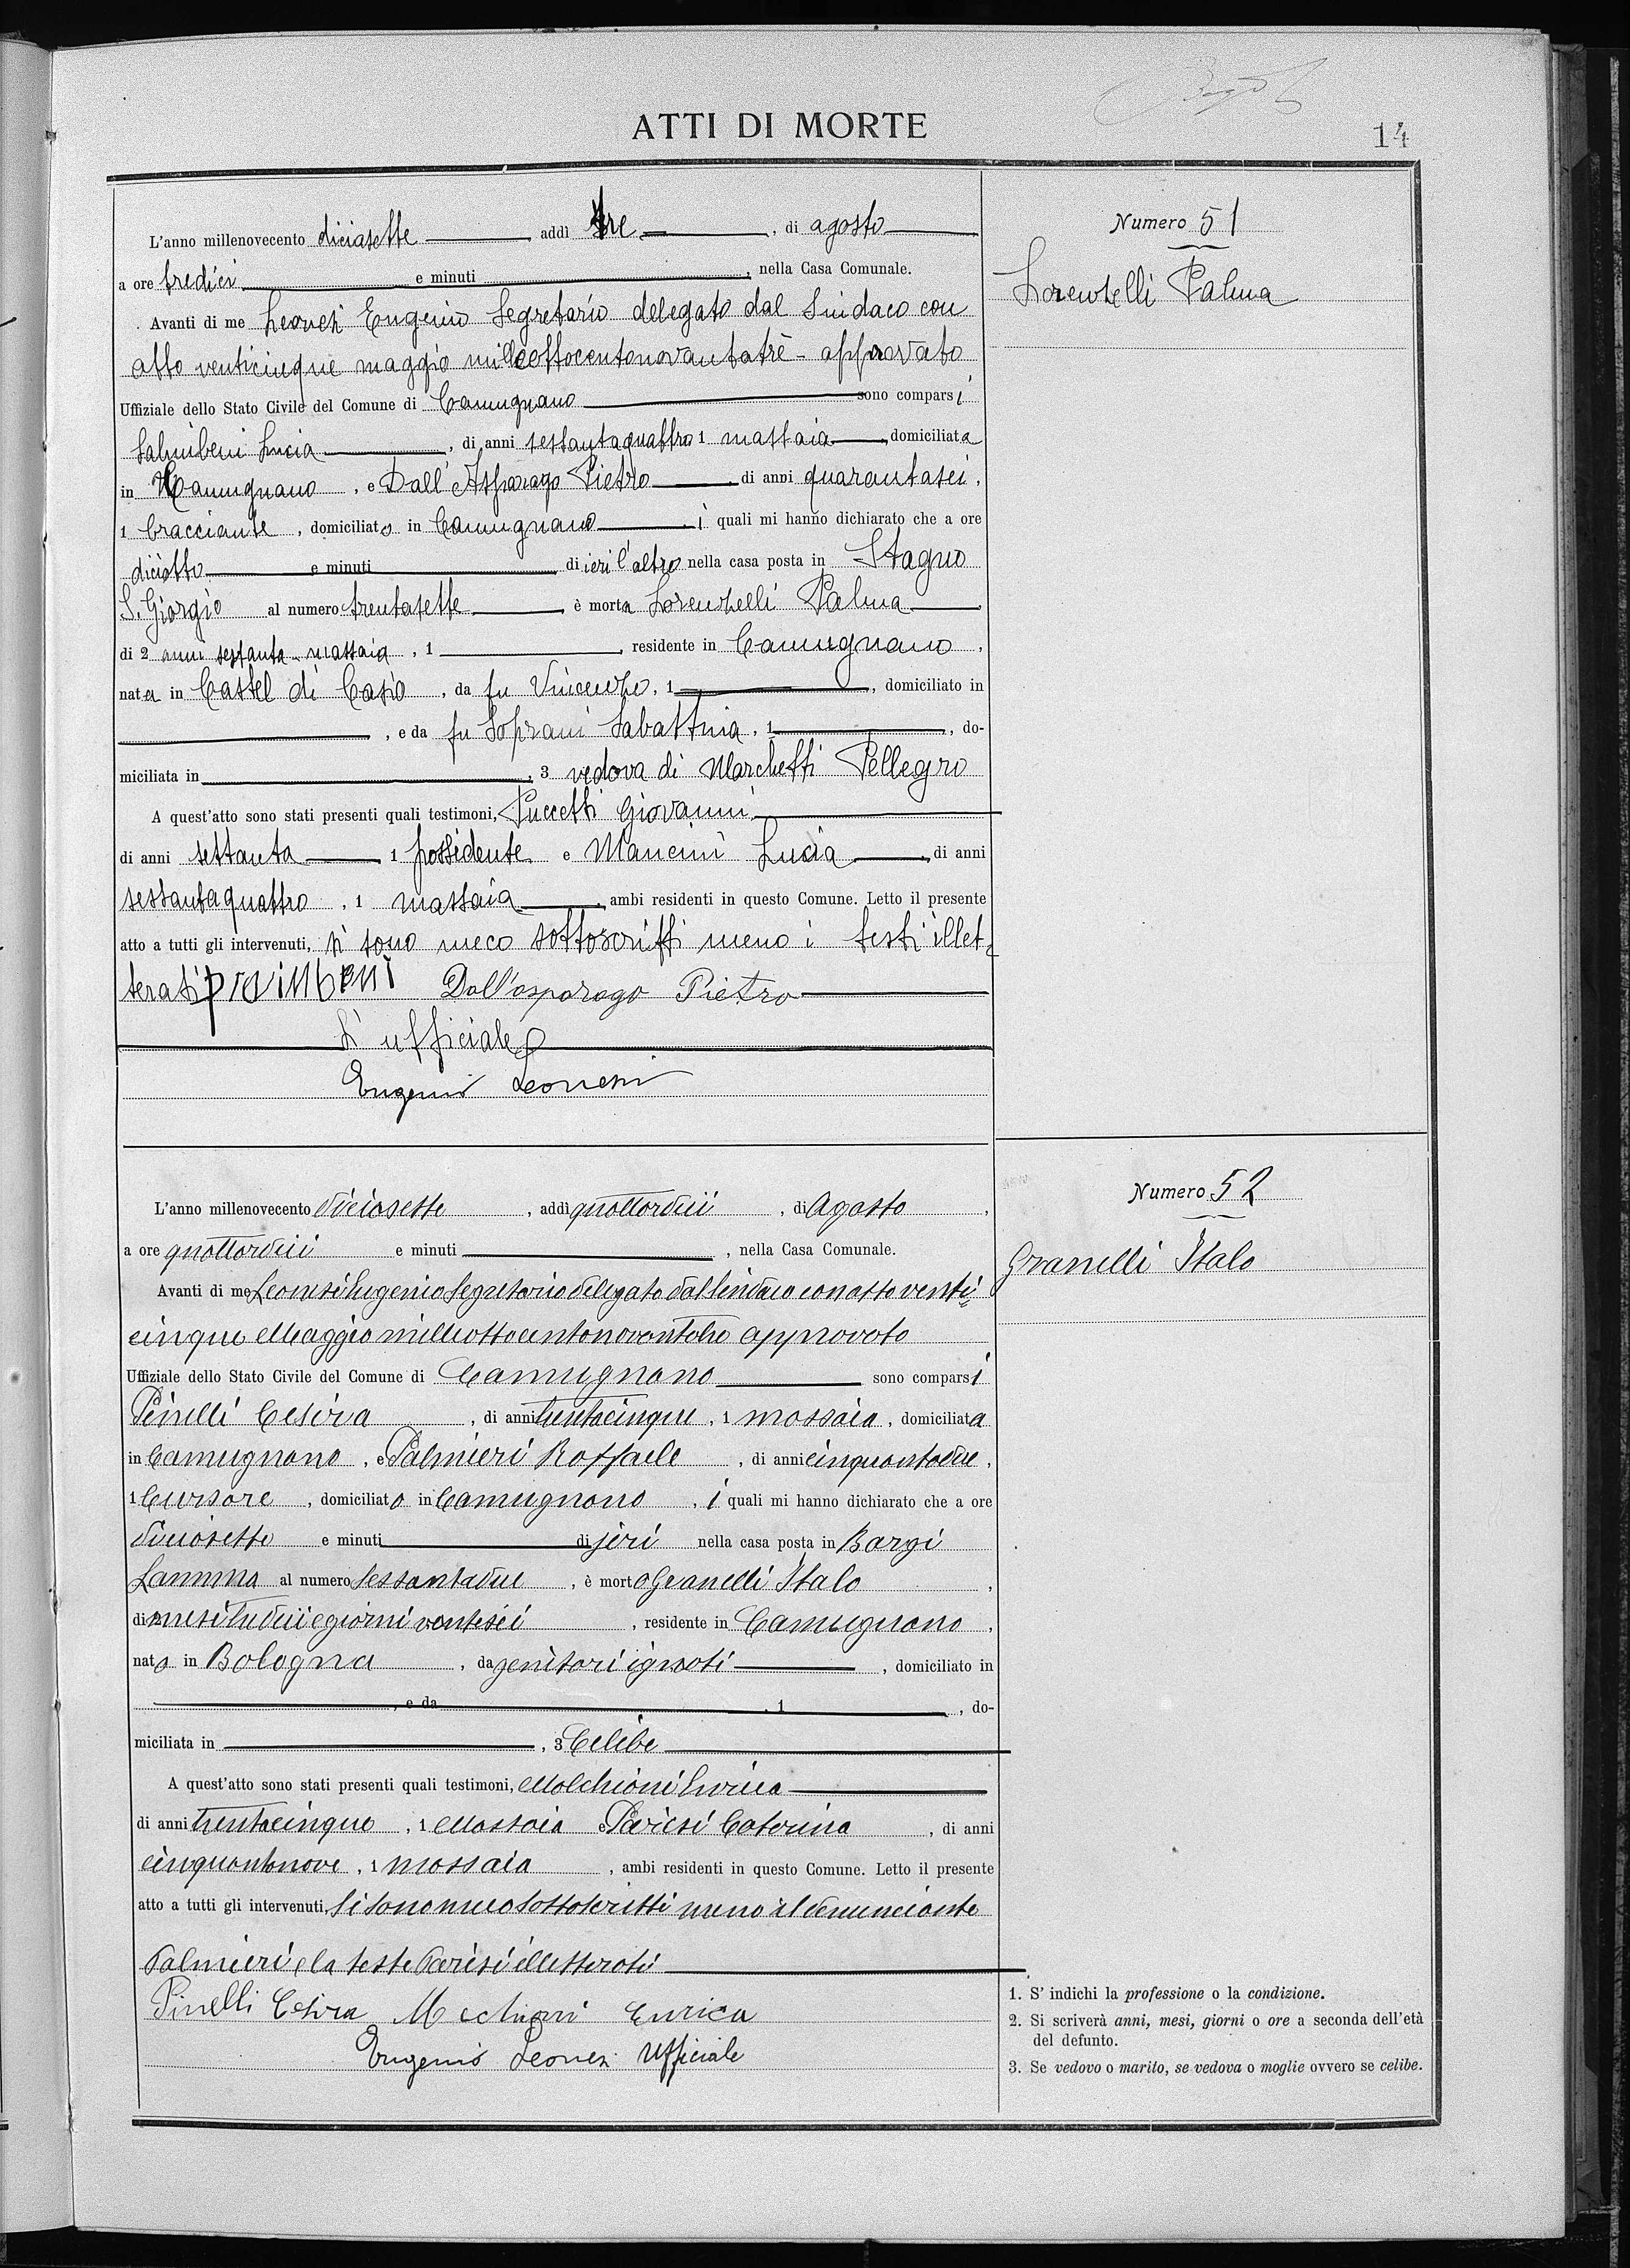 ATTI DI MORTE
14
Numero 51
Lorenzelli Palma
L'anno millenovecento diciasette addì tre, di agosto
a ore tredici e minuti, nella Casa Comunale.
Avanti di me Leonesi Eugenio Segretario delegato dal Sindaco con
atto venticinque maggio milleottocentonovantatrè - approvato
Uffiziale dello Stato Civile del Comune di Camugnano sono comparsi
Salmibeni Lucia, di anni sessantaquattro 1 massaia, domiciliata
in Camugnano, e Dall'Asparago Pietro di anni quarantasei,
1 bracciante, domiciliato in Camugnano, i quali mi hanno dichiarato che a ore
diciotto e minuti di ieri l'altro nella casa posta in Stagno
S. Giorgio al numero trentasette, è morta Lorenzelli Palma,
di 2 anni settanta massaia, 1, residente in Camugnano,
nata in Castel di Casio, da fu Vincenzo, 1, domiciliato in
, e da fu Soprani Sabattina, 1, do-
miciliata in, 3 vedova di Marchetti Pellegro
A quest'atto sono stati presenti quali testimoni, Puccetti Giovanni
di anni settanta 1 possidente e Mancini Lucia, di anni
sessantaquattro, 1 massaia, ambi residenti in questo Comune. Letto il presente
atto a tutti gli intervenuti, si sono meco sottoscritti meno i testi illet=
terati Dall'asparago Pietro
L'ufficiale
Eugenio Leonesi
Numero 52
Granelli Italo
L'anno millenovecento diciasette, addì quattordici, di Agosto,
a ore quattordici e minuti, nella Casa Comunale.
Avanti di me Leonesi Eugenio Segretario delegato dal Sindaco con atto venti=
cinque Maggio milleottocentonovantatre approvato
Uffiziale dello Stato Civile del Comune di Camugnano sono comparsi
Pinelli Cesira, di anni trentacinque, 1 massaia, domiciliata
in Camugnano, e Palmieri Raffaele, di anni cinquantadue,
1 Cursore, domiciliato in Camugnano, i quali mi hanno dichiarato che a ore
diciasette e minuti di jeri nella casa posta in Bargi
Lamma al numero Sessantadue, è morto Granelli Italo,
di 2 mesi tredici e giorni ventisei, residente in Camugnano,
nato in Bologna, da genitori ignoti, domiciliato in
, e da, 1, do-
miciliata in, 3 Celibe
A quest'atto sono stati presenti quali testimoni, Melchioni Enrica
di anni trentacinque, 1 Massaia e Parisi Caterina, di anni
cinquantanove, 1 massaia, ambi residenti in questo Comune. Letto il presente
atto a tutti gli intervenuti, si sono meco sottoscritti meno il denunciante
Palmieri e la teste Parisi illetterati
Pinelli Cesira Melchioni Enrica
Eugenio Leonesi Ufficiale
1. S' indichi la professione o la condizione.
2. Si scriverà anni, mesi, giorni o ore a seconda dell'età
del defunto.
3. Se vedovo o marito, se vedova o moglie ovvero se celibe.